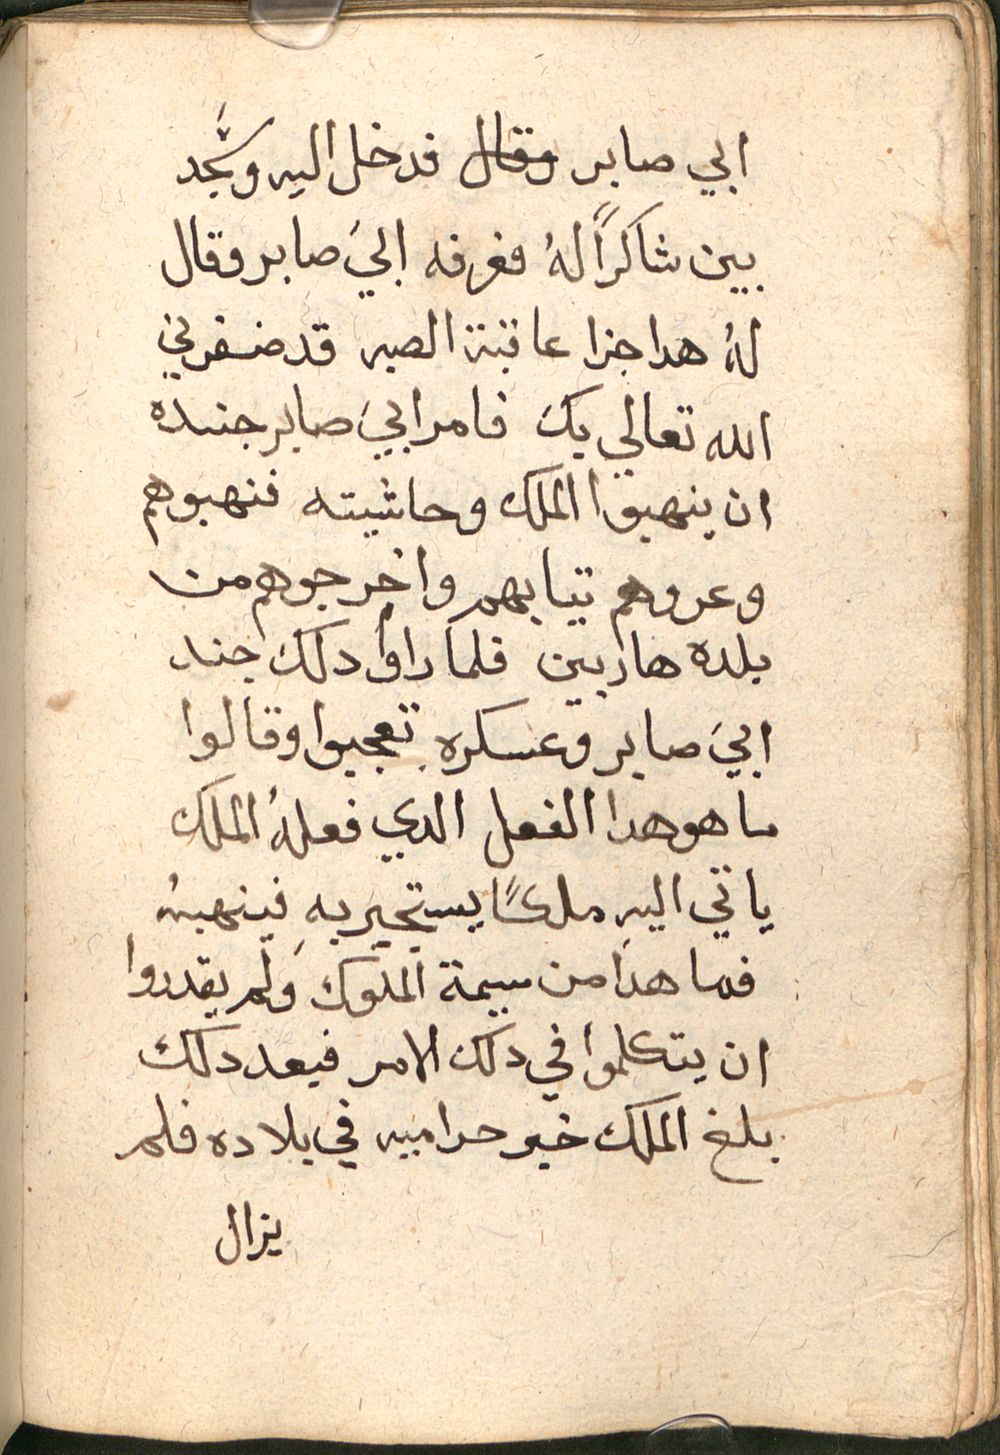 ابي صابر وقال فدخل اليه وسَّجد
بين شاكراً لهُ فعرفه ابيَ صابر وقال
لهُ هدا جزا عاقبة الصبر قد ضفرني
الله تعالي بكَ فامر ابيَ صابر جنده
ان ينهبوا الملك وحاشيته فنهبوهم
وعروهم تيابهم واخرجوهم من
بلده هاربين فلما راوا دلك جند
ابيَ صابر وعسكره تعجبوا وقالوا
ما هو هدا الفعل الدي فعلهُ الملك
ياتي اليهِ ملكاً يستجير بهِ فينهبهُ
فما هدا من سيمة الملوك ولم يقدروا
ان يتكلموا في دلك الامر فبعد دلك
بلغ الملك خبر حراميه في بلاده فلم
يزال